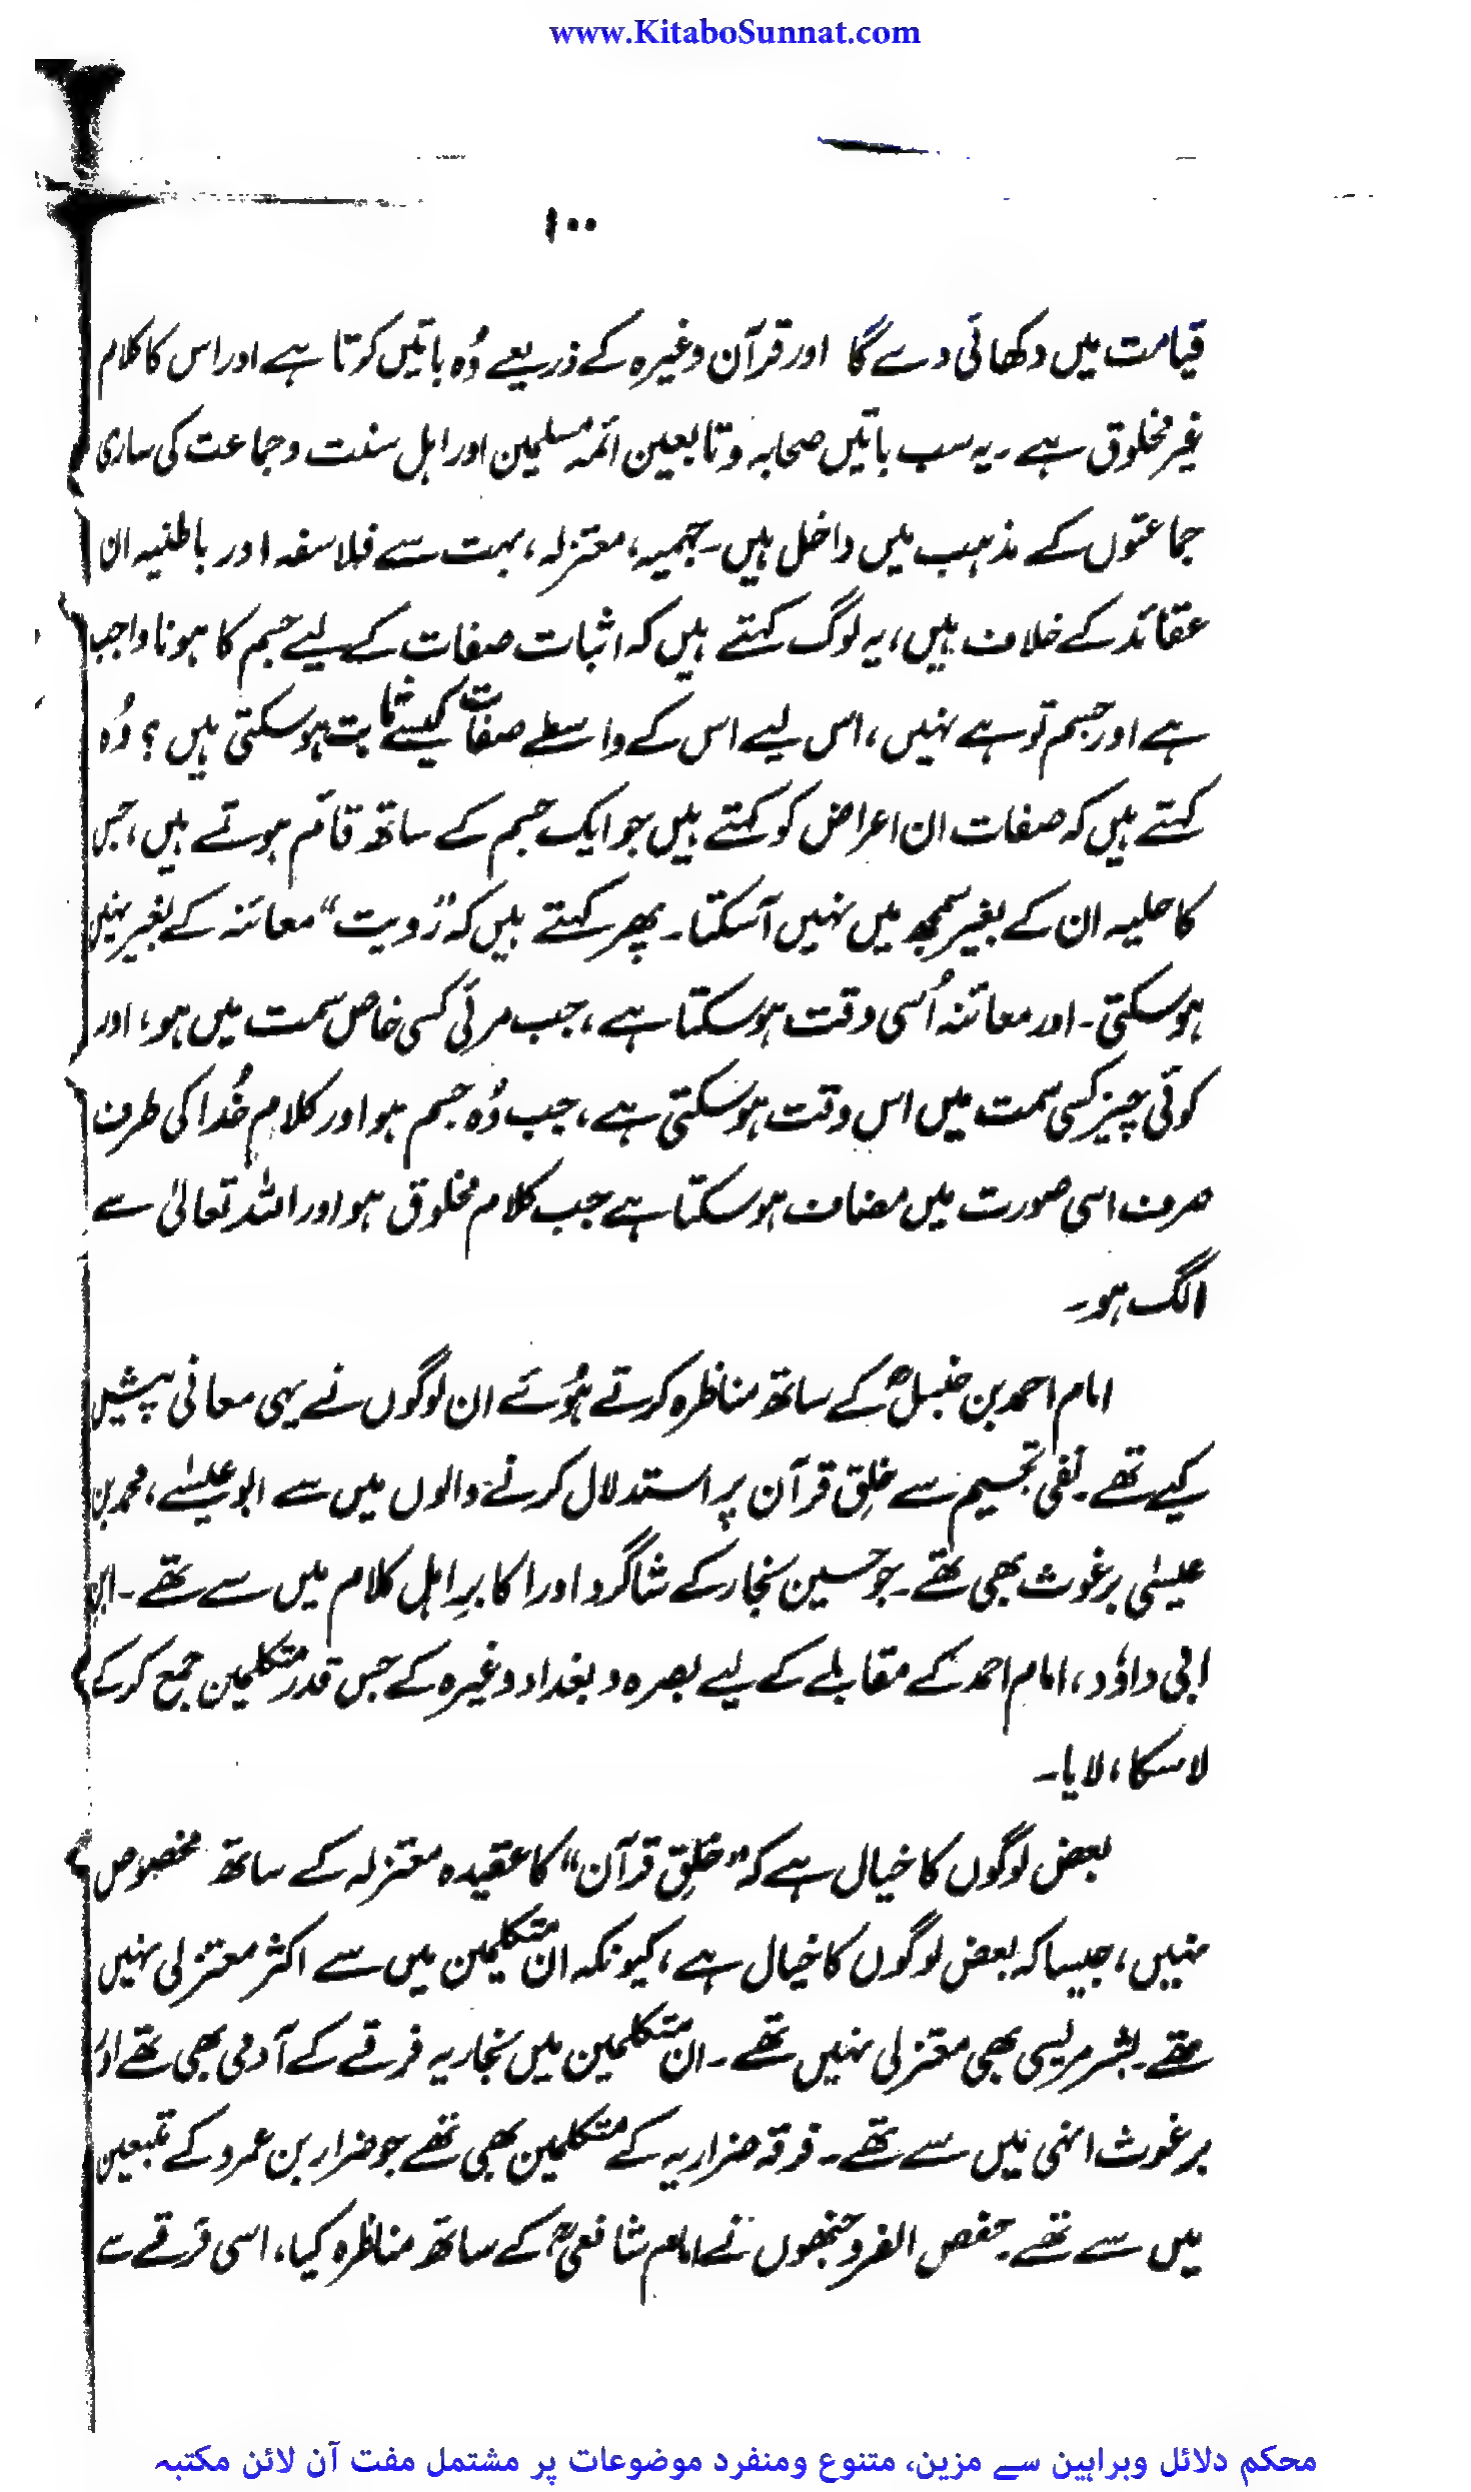 www.KitaboSunnat.com
۱۰۰
قیامت میں دکھائی دے گا اور قرآن وغیرہ کے ذریعے وُہ باتیں کرتا ہے اور اس کا کلام
غیر مخلوق ہے۔ یہ سب باتیں صحابہ و تابعین ائمہ مسلمین اور اہل سنت و جماعت کی ساری
جماعتوں کے مذہب میں داخل ہیں۔ جہمیہ، معتزلہ، بہت سے فلاسفہ اور باطنیہ ان
عقائد کے خلاف ہیں، یہ لوگ کہتے ہیں کہ اثبات صفات کے لیے جسم کا ہونا واجب
ہے اور جسم تو ہے نہیں، اس لیے اس کے واسطے صفات کیسے ثابت ہو سکتی ہیں؟ وُہ
کہتے ہیں کہ صفات ان اعراض کو کہتے ہیں جو ایک جسم کے ساتھ قائم ہوتے ہیں، جس
کا حلیہ ان کے بغیر سمجھ میں نہیں آسکتا۔ پھر کہتے ہیں کہ ”رُویت“ معائنہ کے بغیر نہیں
ہو سکتی۔ اور معائنہ اُسی وقت ہو سکتا ہے، جب مرئی کسی خاص سمت میں ہو، اور
کوئی چیز کسی سمت میں اس وقت ہو سکتی ہے، جب وُہ جسم ہو اور کلام خُدا کی طرف
صرف اسی صورت میں مضاف ہو سکتا ہے جب کلام مخلوق ہو اور اللہ تعالیٰ سے
الگ ہو۔
امام احمد بن حنبلؒ کے ساتھ مناظرہ کرتے ہُوئے ان لوگوں نے یہی معانی پیش
کیے تھے۔ نفی تجسیم سے خلِق قرآن پر استدلال کرنے والوں میں سے ابو عیسٰے، محمد بن
عیسٰی برغوث بھی تھے۔ جو حسین نجار کے شاگرد اور اکابرِ اہل کلام میں سے تھے۔ ابن
ابی داؤد، امام احمد کے مقابلے کے لیے بصرہ و بغداد وغیرہ کے جس قدر متکلمین جمع کر کے
لا سکا، لایا۔
بعض لوگوں کا خیال ہے کہ ”خلِق قرآن“ کا عقیدہ معتزلہ کے ساتھ مخصوص
نہیں، جیسا کہ بعض لوگوں کا خیال ہے، کیونکہ ان متکلمین میں سے اکثر معتزلی نہیں
تھے۔ بشر مریسی بھی معتزلی نہیں تھے۔ ان متکلمین میں نجاریہ فرقے کے آدمی بھی تھے اور
برغوث انہی میں سے تھے۔ فرقہ ضراریہ کے متکلمین بھی تھے جو ضرار بن عمرو کے متبعین
میں سے تھے۔ حفص الفرد جنھوں نے امام شافعیؒ کے ساتھ مناظرہ کیا، اسی فرقے سے
محکم دلائل وبراہین سے مزین، متنوع ومنفرد موضوعات پر مشتمل مفت آن لائن مکتبہ